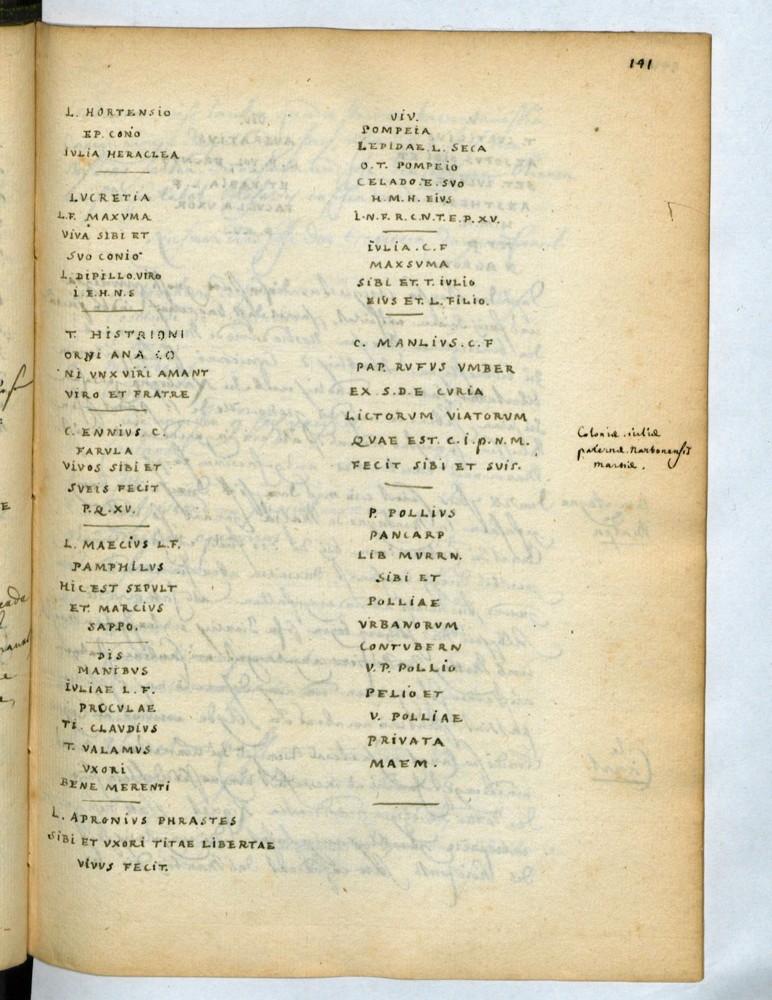 141
L. HORTENSIO
EP. CONO
IVLIA HERACLEA
LVCRETIA
L.F. MAXVMA
VIVA SIBI ET
SVO CONIO
L. DIPILLO.VIRO
I.E.H.N.S
T. HISTRIONI
ORNI ANA
NI VNX VIRI AMANT
VIRO ET FRATRE
C. ENNIVS C.
FARVLA
VIVOS SIBI ET
SVEIS FECIT
P.Q.XV.
L. MAECIVS L.F.
PAMPHILVS
HIC EST SEPVLT
ET MARCIVS
SAPPO.
DIS
MANIBVS
IVLIAE L.F.
PROCVLAE
TI. CLAVDIVS
T. VALAMVS
VXORI
BENE MERENTI
L. APRONIVS PHRASTES
SIBI ET VXORI TITAE LIBERTAE
VIVVS FECIT.
VIV.
POMPEIA
LEPIDAE. L. SECA
O.T. POMPEIO
CELADO.E.SVO
H.M.H. EIVS
I.N.F.R.C.N.T.E.P.XV.
IVLIA.C.F
MAXSVMA
SIBI ET.T.IVLIO
EIVS ET.L.FILIO.
C. MANLIVS.C.F
PAP. RVFVS VMBER
EX.S.D.E CVRIA
LICTORVM VIATORVM
QVAE EST.C.I.P.N.M.
FECIT SIBI ET SVIS.
Coloniæ.iuliæ
paternæ.narbonensis
martiæ.
P. POLLIVS
PANCARP
LIB MVRRN.
SIBI ET
POLLIAE
VRBANORVM
CONTVBERN
V.P. POLLIO
PELIO ET
V. POLLIAE
PRIVATA
MAEM.